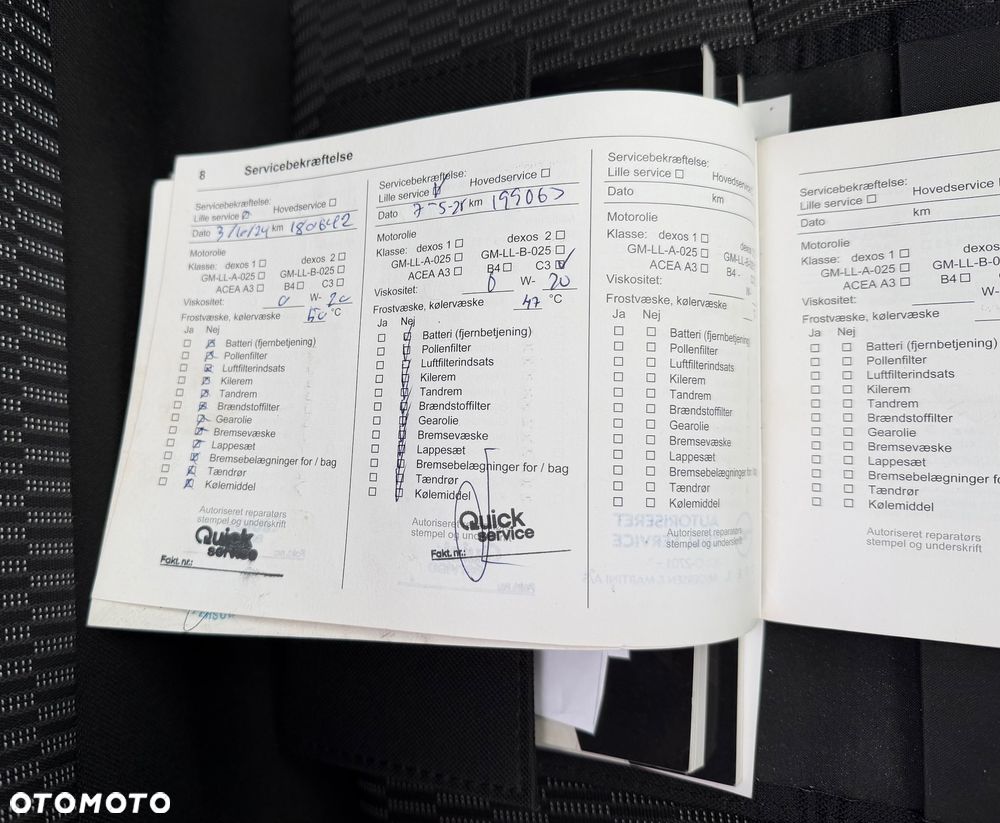 8 Servicebekræftelse
Servicebekræftelse:
Lille service Hovedservice
Dato 3/6/24 km 180642
Motorolie
Klasse: dexos 1 dexos 2
GM-LL-A-025 GM-LL-B-025
ACEA A3 B4 C3
Viskositet: 0 W- 20
Frostvæske, kølervæske 50 °C
Ja Nej
Batteri (fjernbetjening)
Pollenfilter
Luftfilterindsats
Kilerem
Tandrem
Brændstoffilter
Gearolie
Bremsevæske
Lappesæt
Bremsebelægninger for / bag
Tændrør
Kølemiddel
Autoriseret reparatørs
stempel og underskrift
Quick
service
Fakt. nr.:
Servicebekræftelse:
Lille service Hovedservice
Dato km 199063
Motorolie
Klasse: dexos 1 dexos 2
GM-LL-A-025 GM-LL-B-025
ACEA A3 B4 C3
Viskositet: 0 W- 20
Frostvæske, kølervæske 47 °C
Ja Nej
Batteri (fjernbetjening)
Pollenfilter
Luftfilterindsats
Kilerem
Tandrem
Brændstoffilter
Gearolie
Bremsevæske
Lappesæt
Bremsebelægninger for / bag
Tændrør
Kølemiddel
Autoriseret
stempel og
Quick
service
Fakt. nr.:
Servicebekræftelse:
Lille service
Dato km
Motorolie
Klasse: dexos 1
GM-LL-A-025
ACEA A3 B4
Viskositet: W-
Frostvæske, kølervæske
Ja Nej
Batteri
Pollenfilter
Luftfilterindsats
Kilerem
Tandrem
Brændstoffilter
Gearolie
Bremsevæske
Lappesæt
Bremsebelægninger for
Tændrør
Kølemiddel
Autoriseret reparatørs
stempel og underskrift
Servicebekræftelse:
Lille service Hovedservice
Dato km
Motorolie
Klasse: dexos 1
GM-LL-A-025
ACEA A3 B4
Viskositet: W-
Frostvæske, kølervæske
Ja Nej
Batteri (fjernbetjening)
Pollenfilter
Luftfilterindsats
Kilerem
Tandrem
Brændstoffilter
Gearolie
Bremsevæske
Lappesæt
Bremsebelægninger
Tændrør
Kølemiddel
Autoriseret reparatørs
stempel og underskrift
OTOMOTO